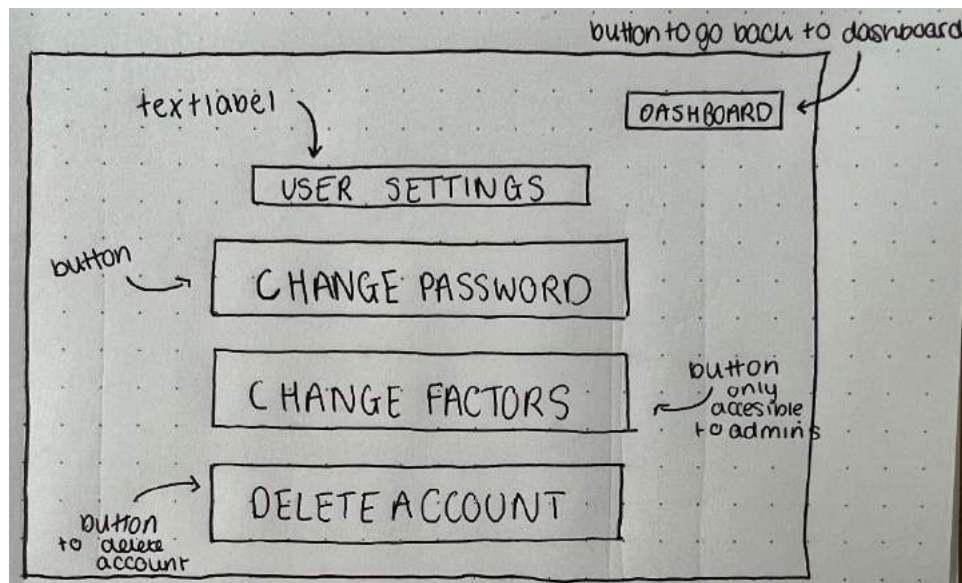 button to go back to dashboard
textlabel
DASHBOARD
USER SETTINGS
button
CHANGE PASSWORD
CHANGE FACTORS
button
only
accesible
to admins
DELETE ACCOUNT
button
to delete
account